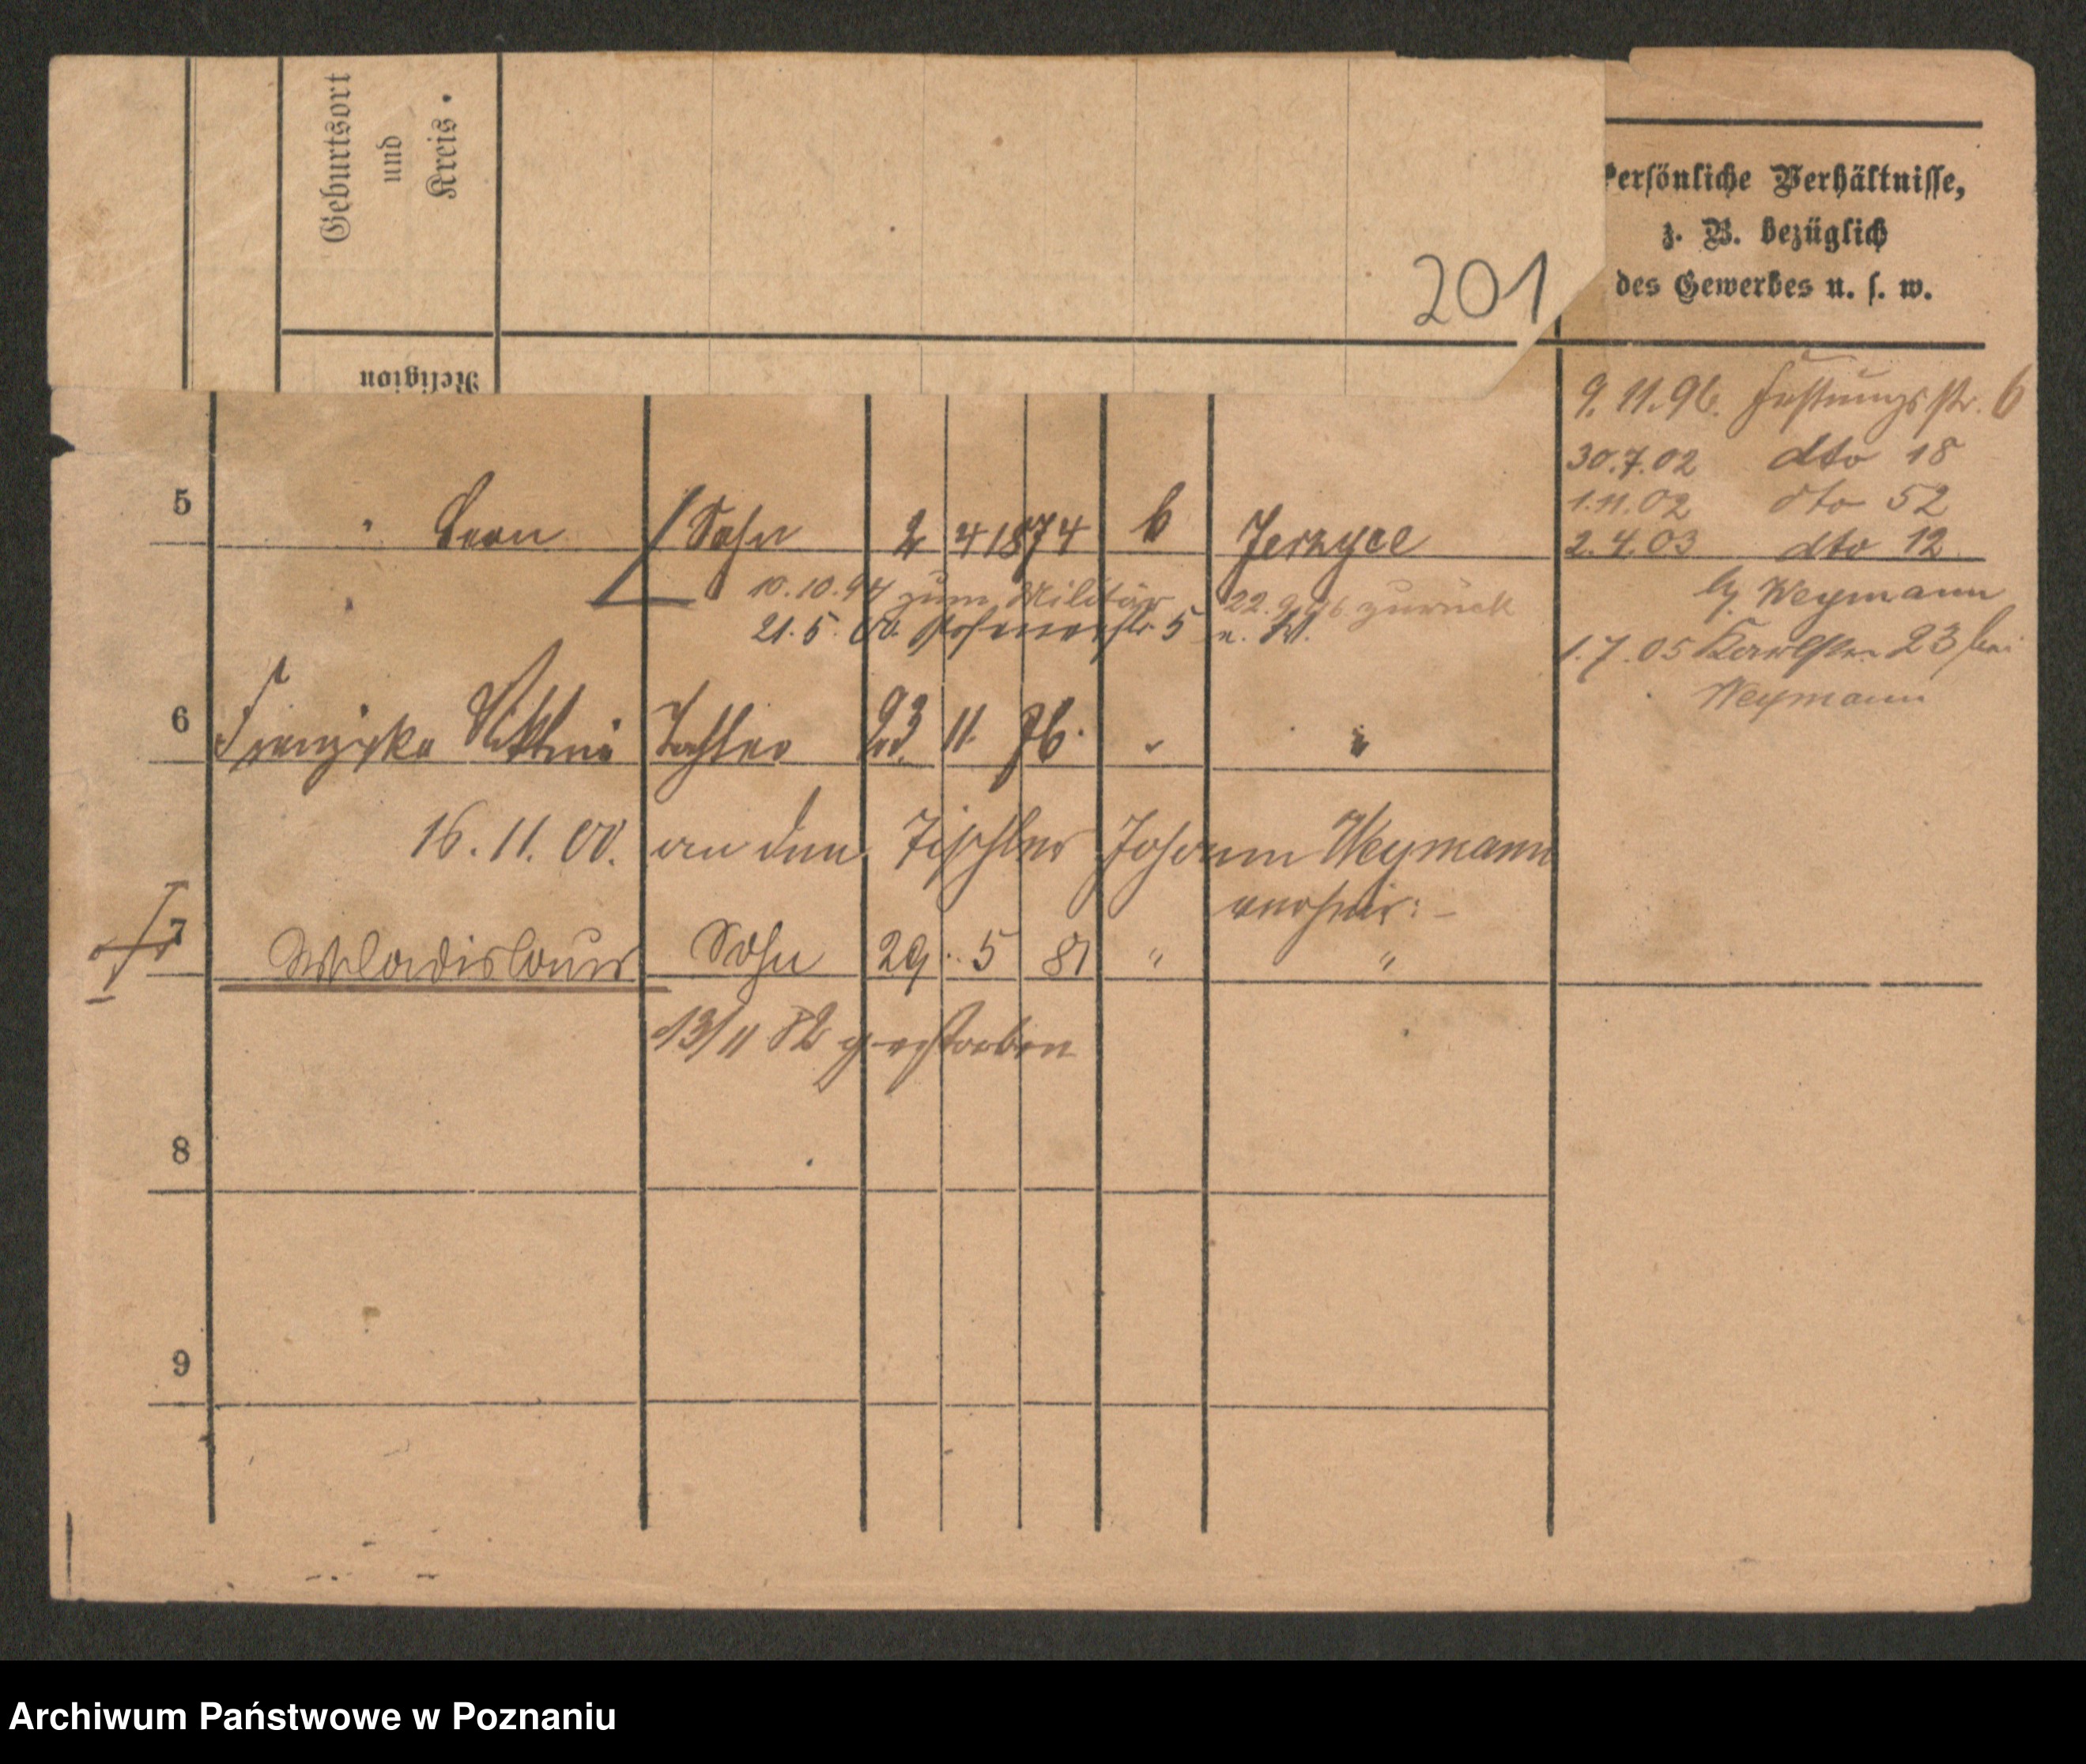 Geburtsort
und
Kreis.
Religion
201
Persönliche Verhältnisse,
z. B. bezüglich
des Gewerbes u. s. w.
9.11.96. Festungsstr. 6
30.7.02 dto 18
1.11.02 dto 52
2.4.03 dto 12
bei Weymann
1.7.05 Karlstr. 23 bei
Weymann
5 " Leon Sohn 2 4 1874 k Jerzyce
10.10.94 zum Militär 22.9.96 zurück
21.5.00. 5
6 Franziska Tochter 23. 11. 76. " "
16.11.00. an den Tischler Johann Weymann
verheir:
7 Wladislaus Sohn 29. 5 81 " "
13/11 82 gestorben
8
9
Archiwum Państwowe w Poznaniu